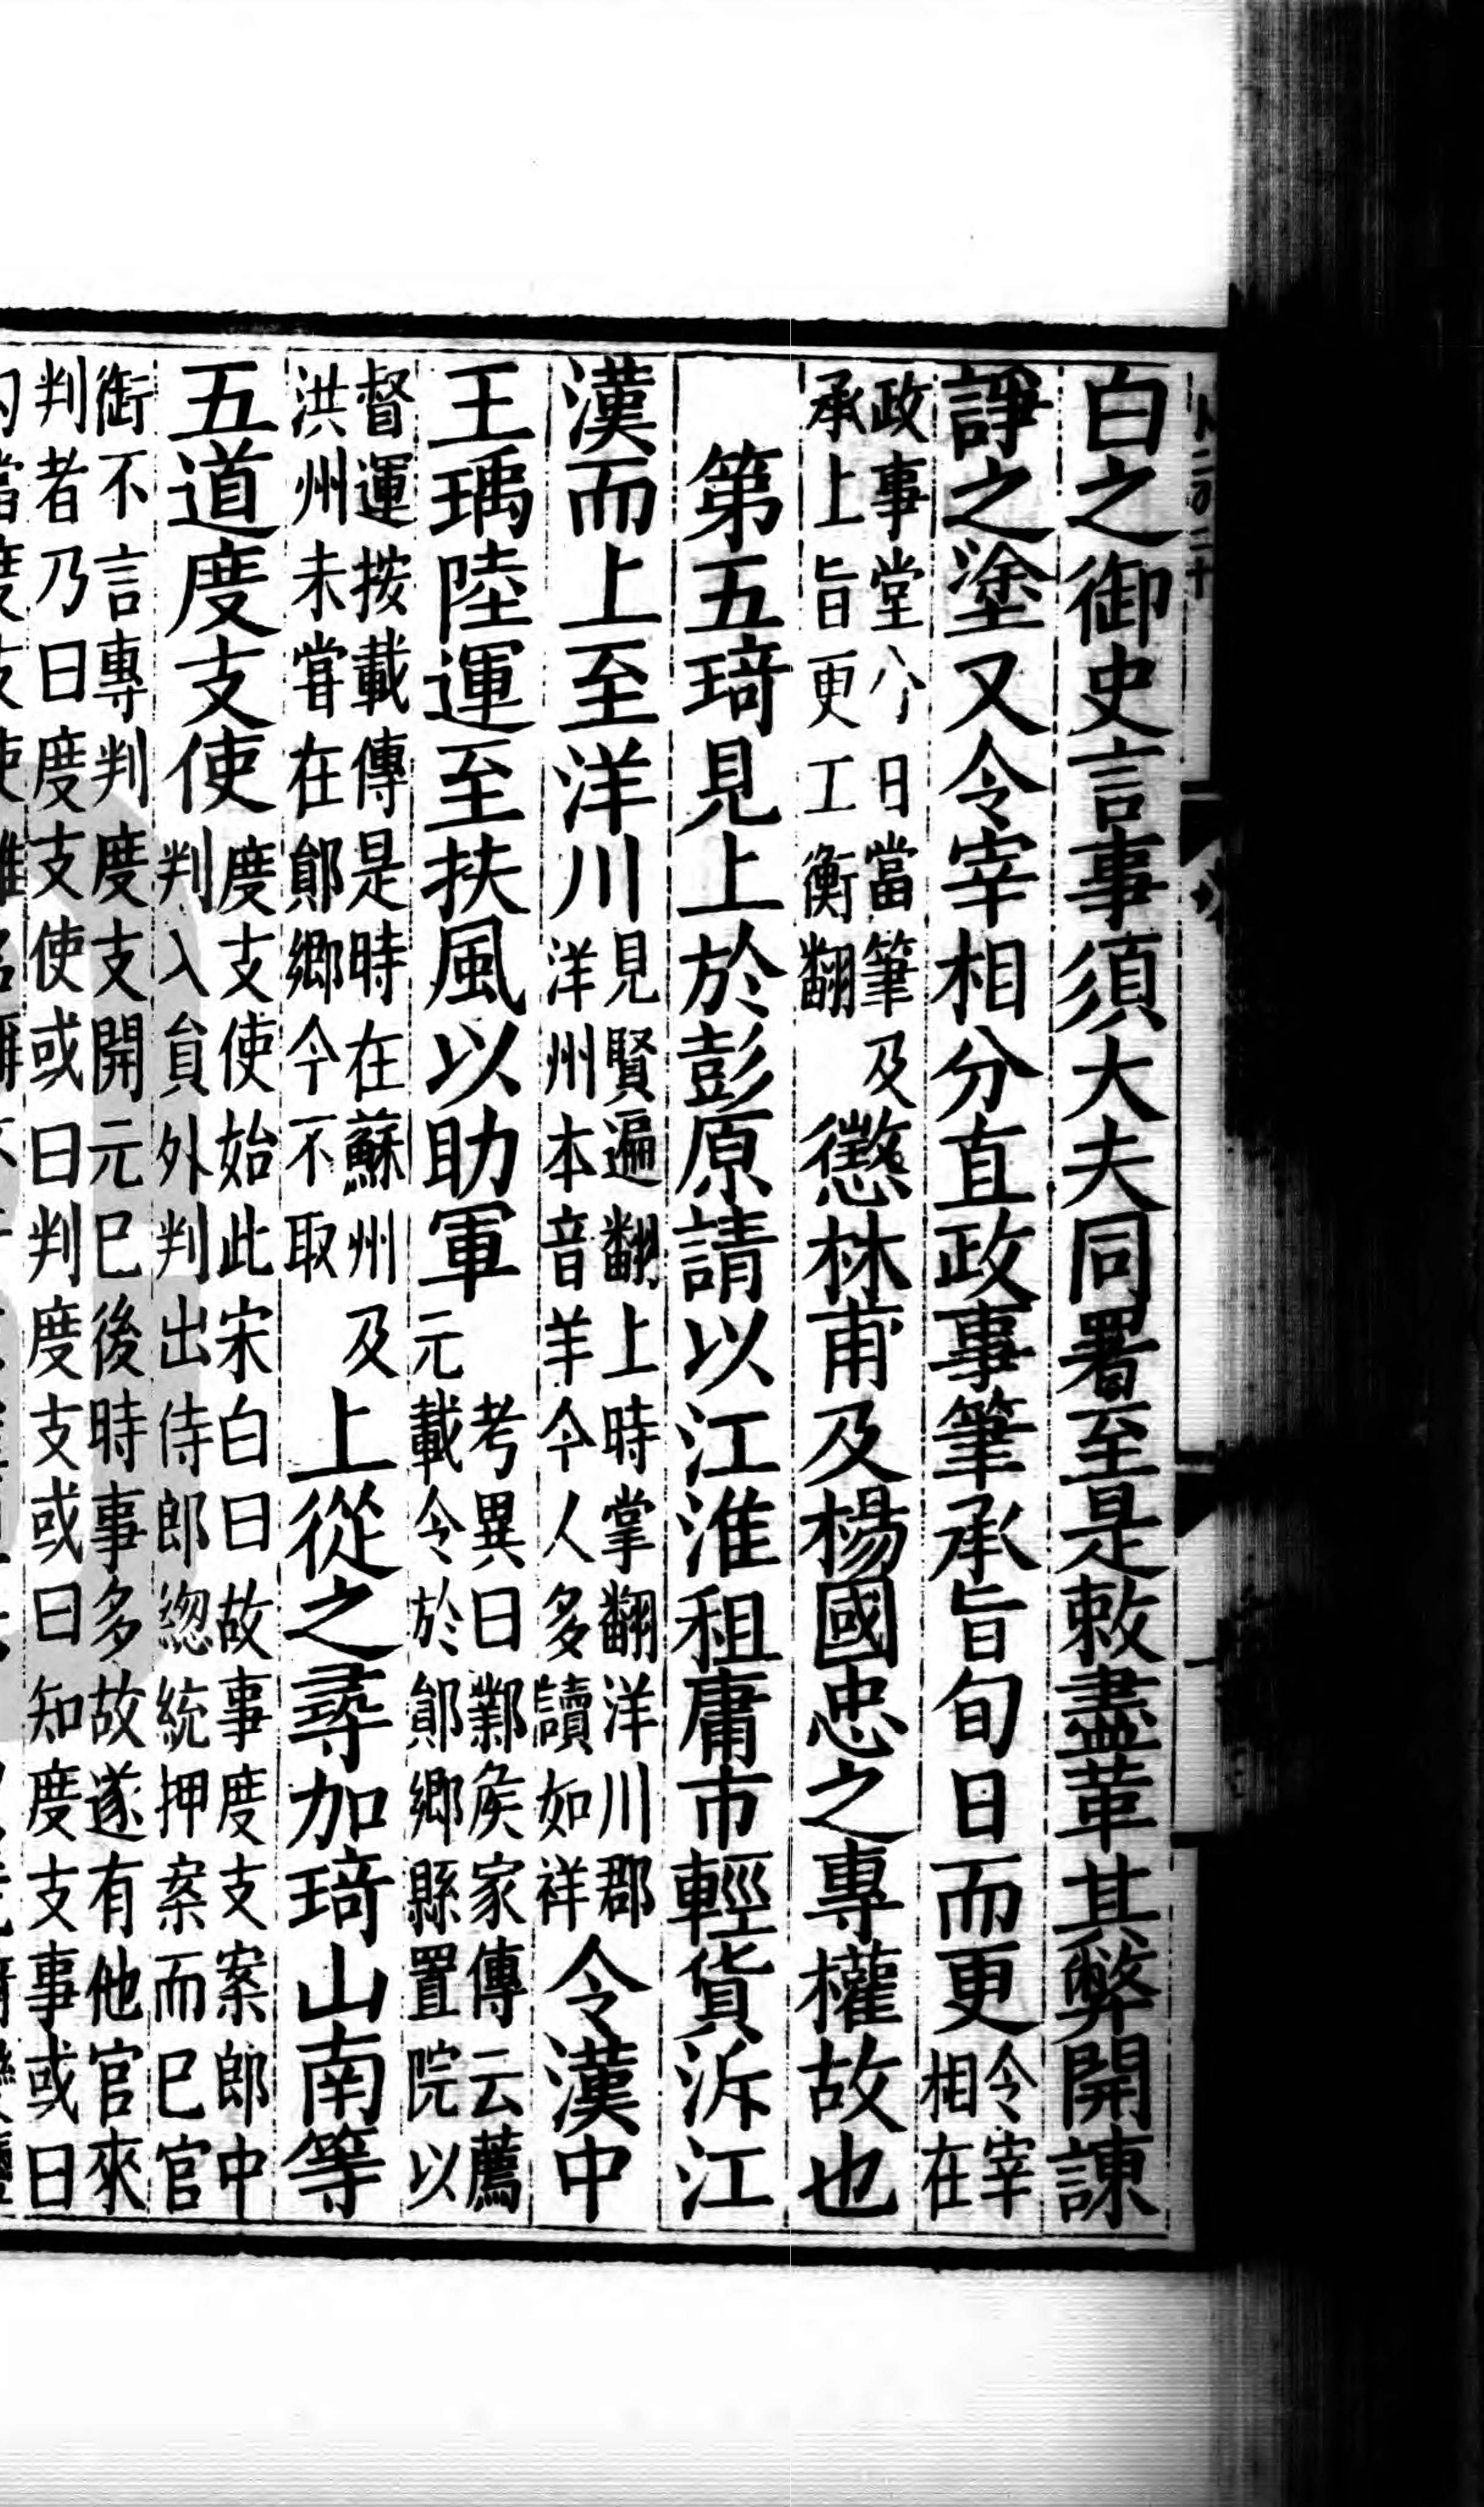 白之御史言事須大夫同署至是敕盡革其弊開諫
諍之塗又令宰相分直政事筆承旨旬日而更令宰
相在
政事堂分日當筆及
承上旨更工衡翻
懲林甫及楊國忠之專權故也
第五琦見上於彭原請以江淮租庸市輕貨泝江
漢而上至洋川見賢遍翻上時掌翻洋川郡
洋州本音羊今人多讀如祥
令漢中
王瑀陸運至扶風以助軍考異曰鄴侯家傳云薦
元載令於鄖鄉縣置院以
督運按載傳是時在蘇州及
洪州未嘗在鄖鄉今不取
上從之尋加琦山南等
五道度支使度支使始此宋白曰故事度支案郎中
判入貟外判出侍郎緫統押案而巳官
銜不言專判度支開元巳後時事多故遂有他官來
判者乃曰度支使或曰判度支或曰知度支事或曰